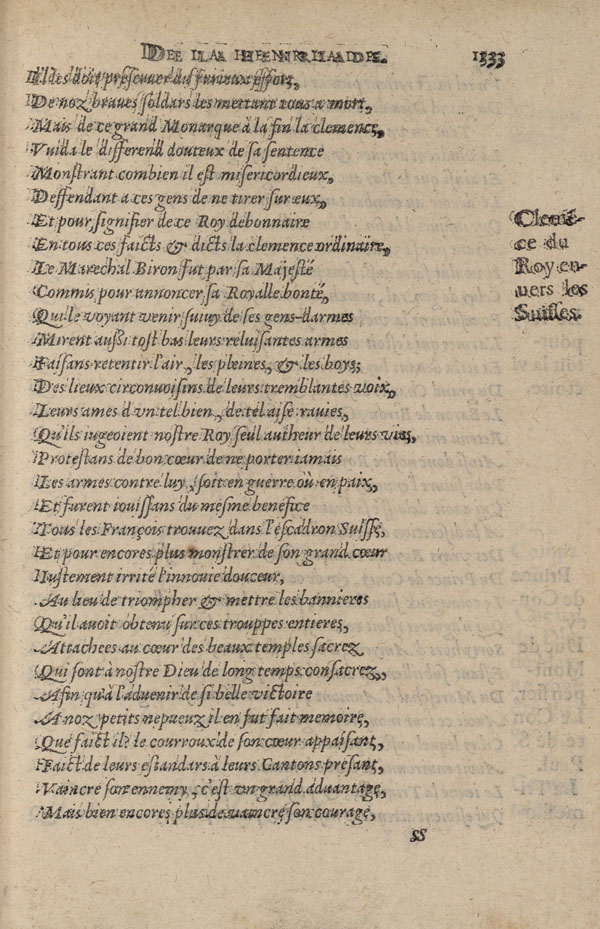 DE LA HENRIADE. 133
Il les doit preserver du furieux effort,
De noz braves soldars les mettant tous a mort,
Mais de ce grand Monarque à la fin la clemence,
Vuida le differend douteux de sa sentence
Monstrant combien il est misericordieux,
Deffendant a ces gens de ne tirer sur eux,
Et pour signifier de ce Roy debonnaire
En tous ces faicts & dicts la clemence ordinaire,
Le Marechal Biron fut par sa Majesté
Commis pour annoncer sa Royalle bonté,
Qui le voyant venir suivy de ses gens-darmes
Mirent aussi tost bas leurs reluisantes armes
Faisans retentir l'air, les pleines, & les boys;
Des lieux circonvoisins de leurs tremblantes voix,
Leurs ames d'vn tel bien, de tel aise ravies,
Qu'ils iugeoient nostre Roy seul autheur de leurs vies,
Protestans de bon cœur de ne porter iamais
Les armes contre luy, soit en guerre où en paix,
Et furent iouissans du mesme benefice
Tous les François trouuez dans l'escadron Suisse,
Et pour encores plus monstrer de son grand cœur
Iustement irrité l'innouie douceur,
Au lieu de triompher & mettre les bannieres
Qu'il avoit obtenu sur ces trouppes entieres,
Attachees au cœur des beaux temples sacrez
Qui sont à nostre Dieu de long temps consacrez,
Afin qu'à l'advenir de si belle victoire
A noz petits nepueuz il en fut fait memoire,
Que faict il? le courroux de son cœur appaisant,
Faict de leurs estandars à leurs Cantons present,
Vaincre son ennemy, c'est vn grand aduantage,
Mais bien encores plus de vaincre son courage,
SS
Clemē-
ce du
Roy en-
uers les
Suisses.